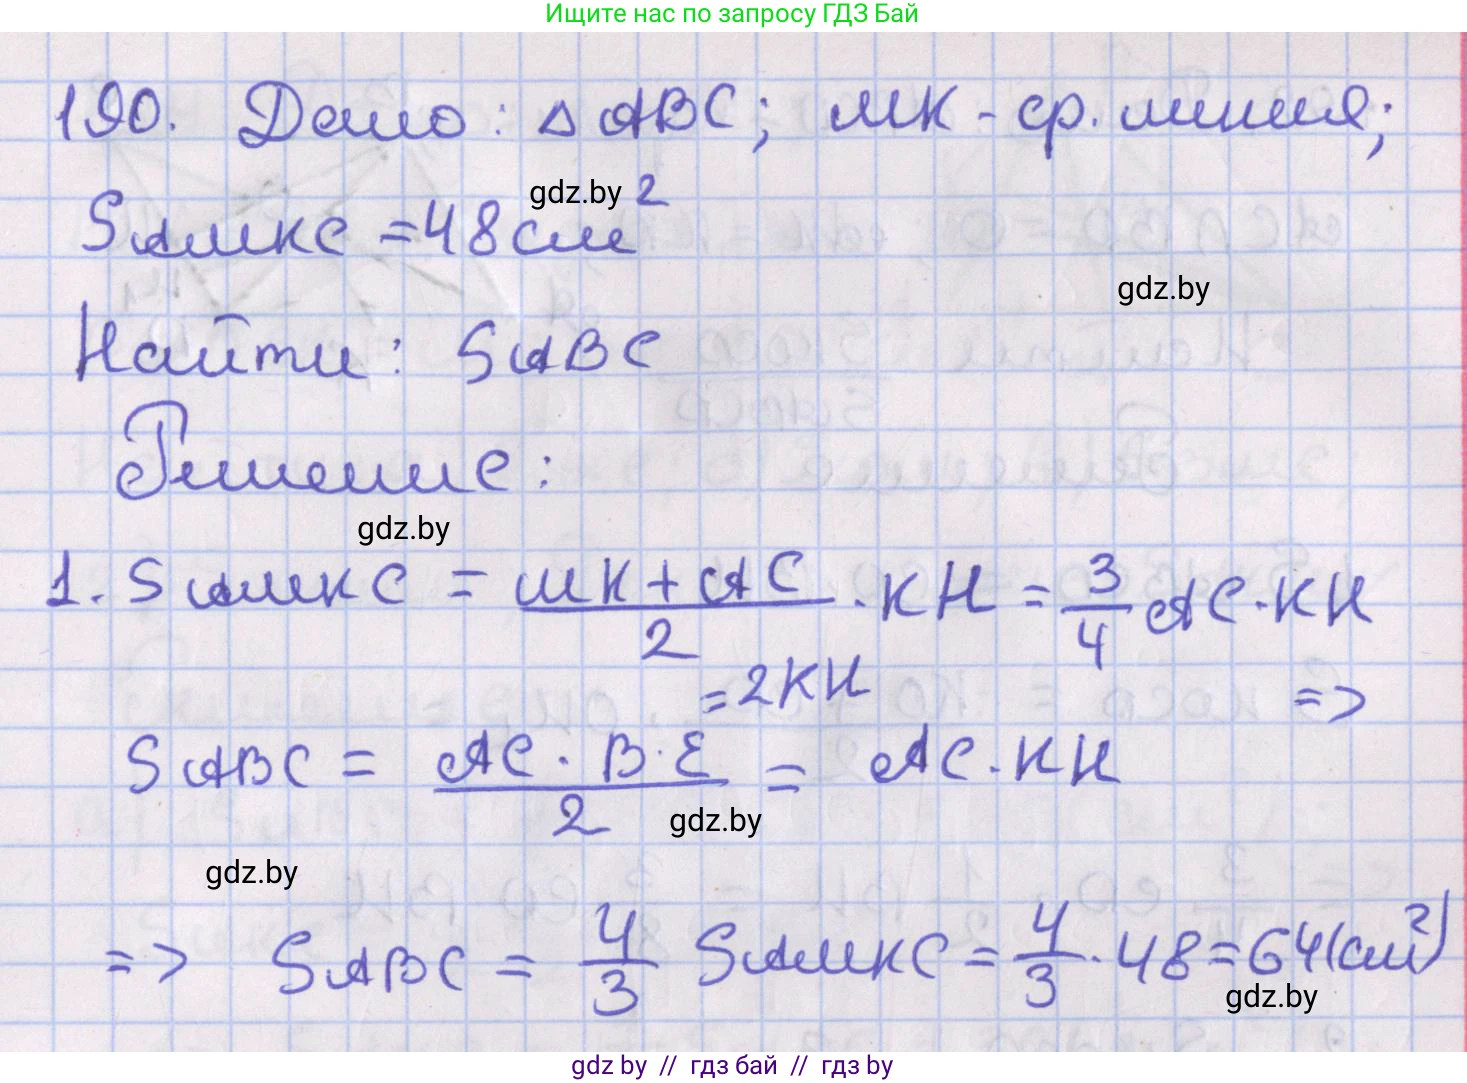 Ищите нас по запросу ГДЗ Бай
190. Дано: △ ABC; MK - ср. линия;
gdz.by
SAMKC = 48 см²
gdz.by
Найти: SABC
Решение:
gdz.by
1. SAMKC = (MK + AC)/2 · KH = 3/4 AC · KH
= 2KH =>
SABC = (AC · B · E)/2 = AC · KH
gdz.by
gdz.by
=> SABC = 4/3 SAMKC = 4/3 · 48 = 64 (см²)
gdz.by
gdz by // гдз бай // гдз by